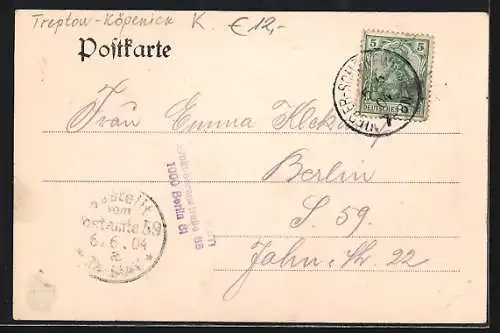 Treptow-Köpenick K. € 12,-
Postkarte
5 5
DEUTSCHES
NIEDER-SCH
Frau Emma
Berlin
S. 59.
Jahn Str. 22
Bestellt
vom
Postamte 59
6.6.04
1000 Berlin 61